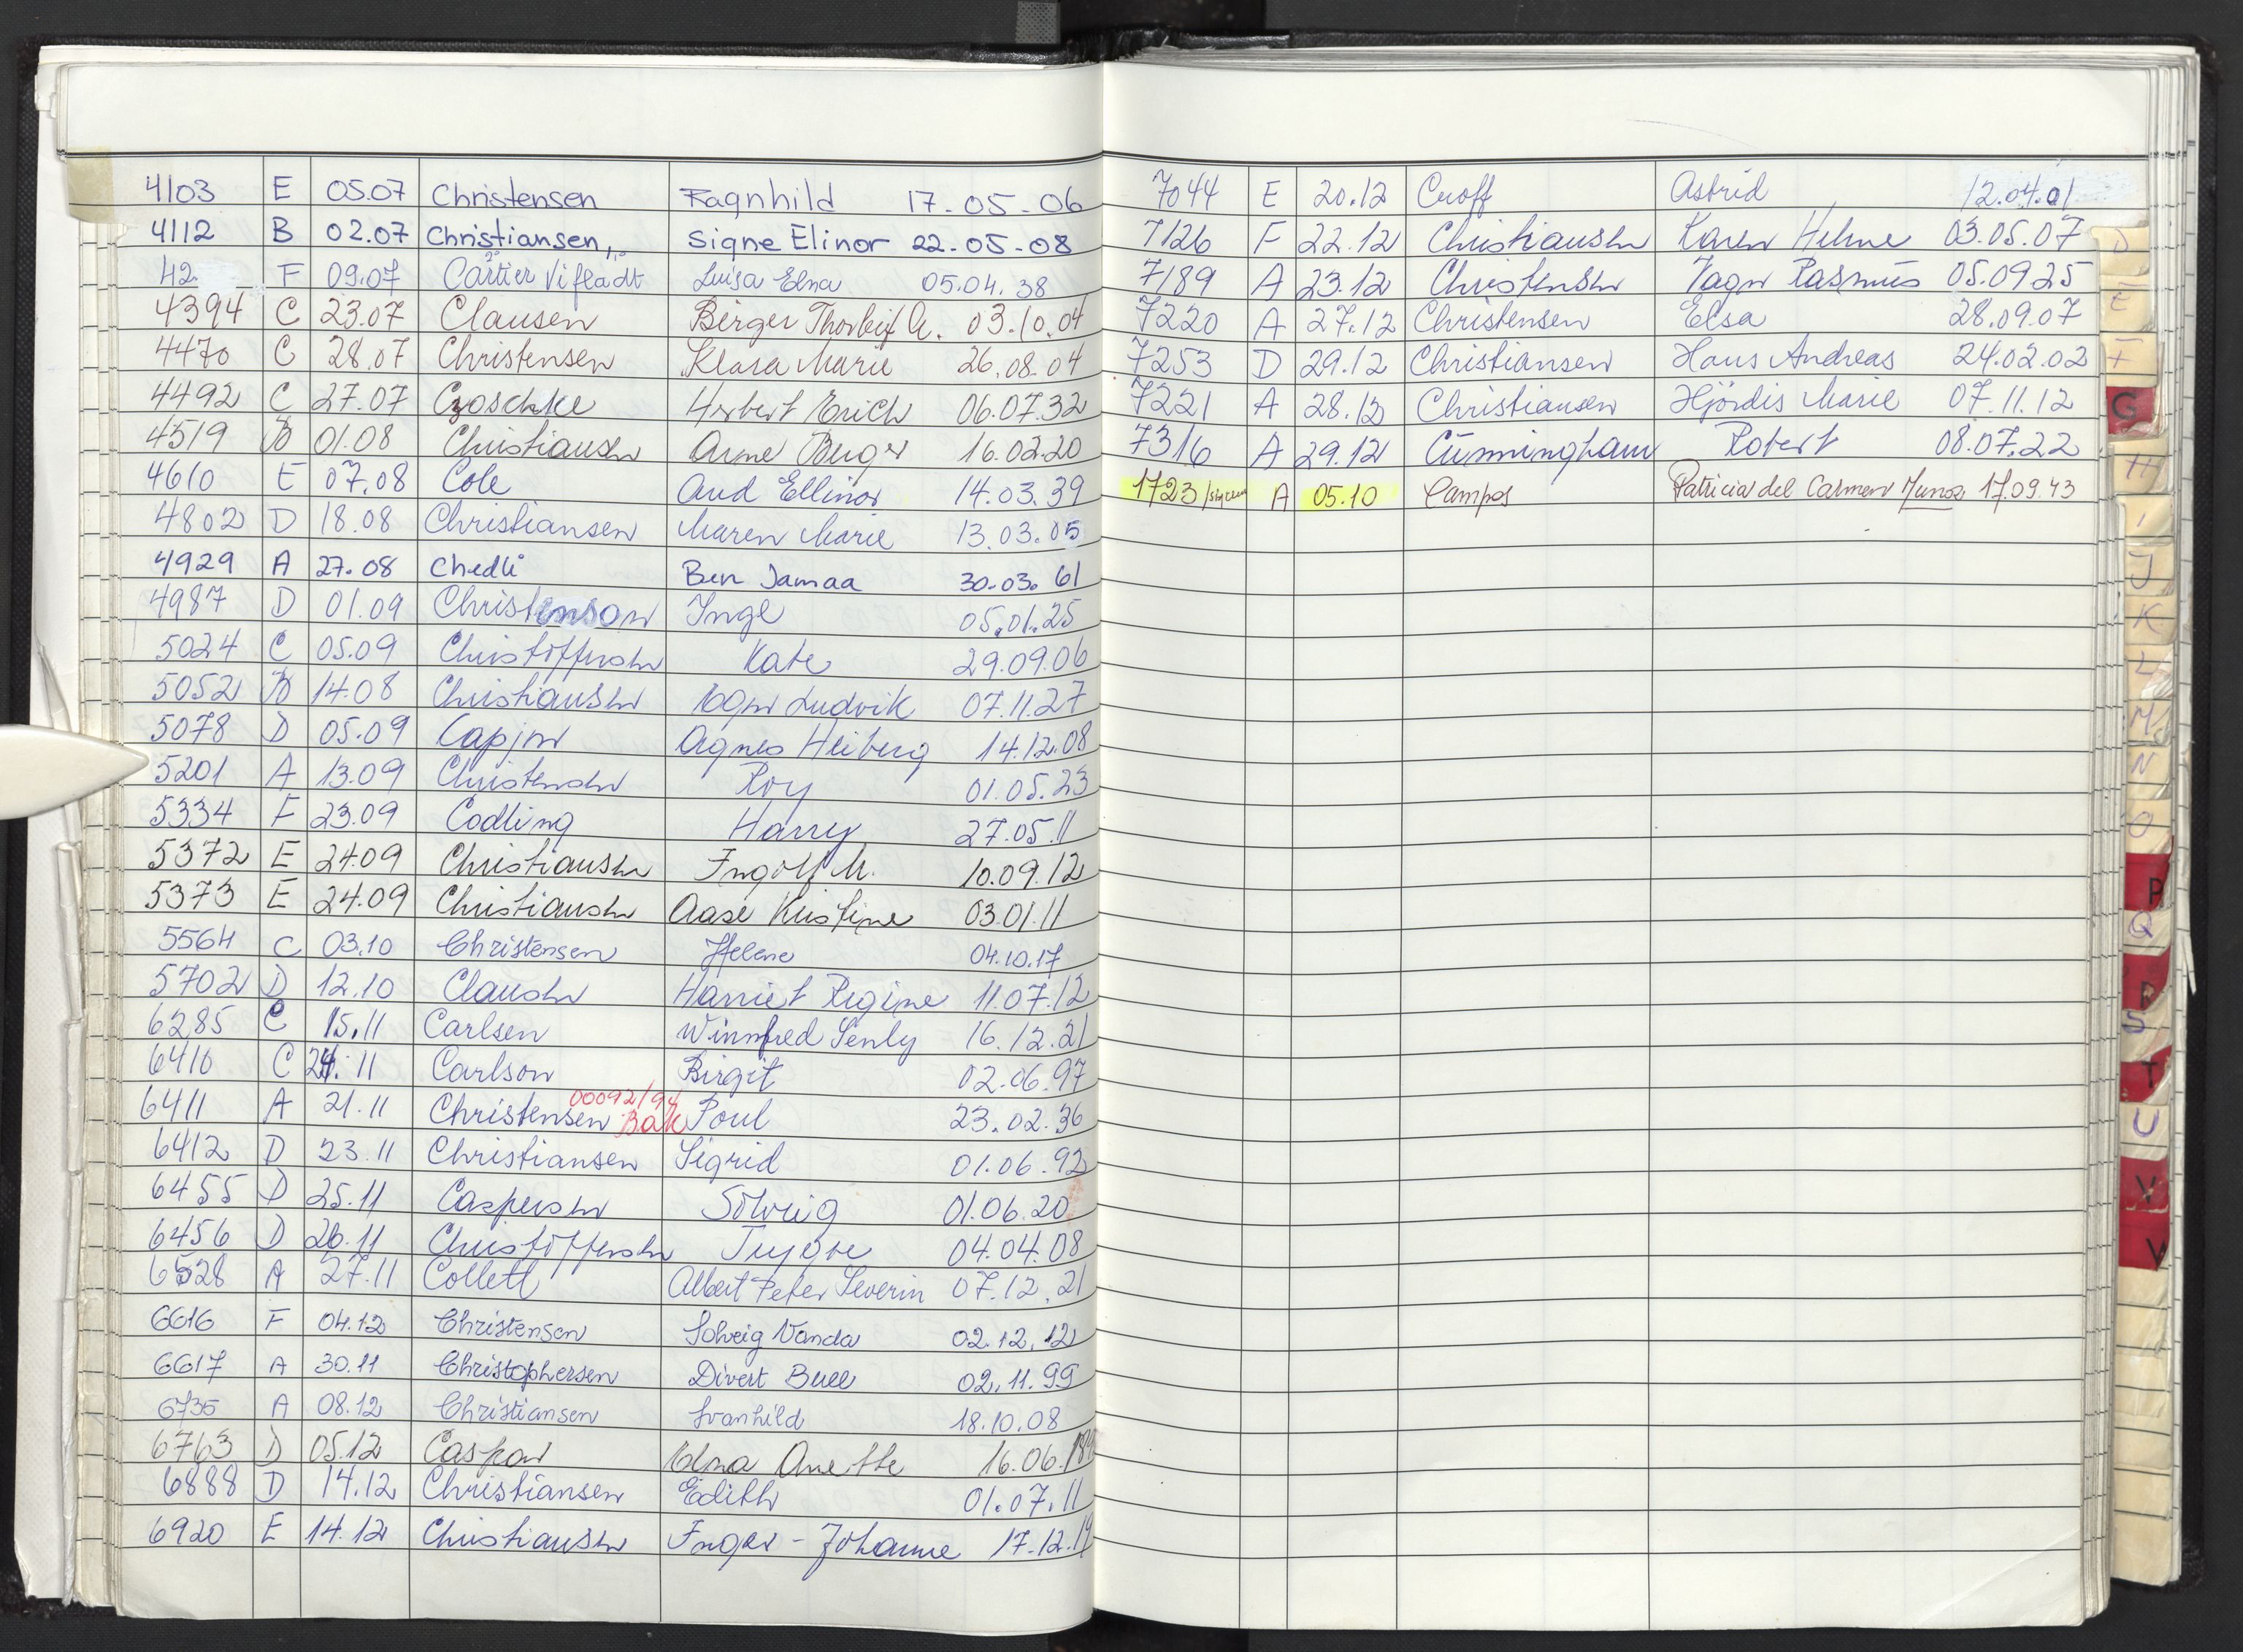 4103 E 05.07 Christensen Ragnhild 17-05-06
4112 B 02.07 Christiansen, Signe Elinor 22-05-08
42 F 09.07 Cartier Vifladt Luisa Elna 05.04.38
4394 C 23.07 Clausen Birger Thorleif A. 03.10.04
4470 C 28.07 Christensen Klara Marie 26.08.04
4492 C 27.07 Czoschke Herbert Erich 06.07.32
4519 B 01.08 Christiansen Arne Berger 16.02.20
4610 E 07.08 Cole Aud Ellinor 14.03.39
4802 D 18.08 Christiansen Maren Marie 13.03.05
4929 A 27.08 Chedli Ben Jamaa 30.03.61
4987 D 01.09 Christenson Inge 05.01.25
5024 C 05.09 Christoffersen Kate 29.09.06
5052 B 14.08 Christiansen Ludvik 07.11.27
5078 D 05.09 Capjon Agnes Heiberg 14.12.08
5201 A 13.09 Christensen Roy 01.05.23
5334 F 23.09 Codling Harry 27.05.11
5372 E 24.09 Christiansen Ingolf M. 10.09.12
5373 E 24.09 Christiansen Aase Kristine 03.01.11
5564 C 03.10 Christensen Helene 04.10.17
5702 D 12.10 Clausen Harriet Regine 11.07.12
6285 C 15.11 Carlsen Winnifred Senly 16.12.21
6410 C 24.11 Carlson Birgit 02.06.97
00092/94
6411 A 21.11 Christensen Bak Poul 23.02.36
6412 D 23.11 Christiansen Sigrid 01.06.92
6455 D 25.11 Caspersen Solveig 01.06.20
6456 D 26.11 Christoffersen Trygve 04.04.08
6528 A 27.11 Collett Albert Peter Severin 07.12.21
6616 F 04.12 Christensen Solveig Vanda 02.12.12
6617 A 30.11 Christophersen Divert Bull 02.11.99
6735 A 08.12 Christiansen Svanhild 18.10.08
6763 D 05.12 Caspar Edna Anette 16.06.
6888 D 14.12 Christiansen Edith 01.07.11
6920 E 14.12 Christiansen Inger-Johanne 17.12.19
7044 E 20.12 Cuoff Astrid 12.04.01
7126 F 22.12 Christiansen Karen Helene 03.05.07
7189 A 23.12 Christensen Vagn Rasmus 05.09.25
7220 A 27.12 Christensen Elsa 28.09.07
7253 D 29.12 Christiansen Hans Andreas 24.02.02
7221 A 28.12 Christiansen Hjördis Marie 07.11.12
7316 A 29.12 Cunningham Robert 08.07.22
1723 A 05.10 Campos Patricia del Carmen Munoz 17.09.43
D
E
F
G
H
I
J
K
L
M
N
O
P
Q
R
S
T
U
V